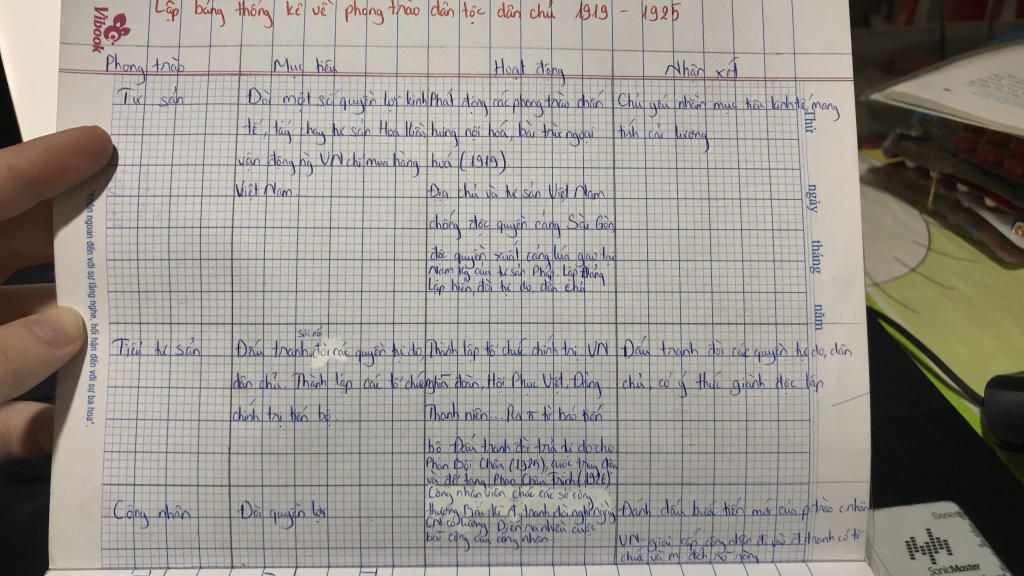 Lập bảng thống kê về phong trào dân tộc dân chủ 1919 - 1925
Vibook
Phong trào
Mục tiêu
Hoạt động
Nhận xét
Tư sản
Đòi một số quyền lợi kinh
tế, tẩy chay tư sản Hoa kiều,
vận động ng VN chỉ mua hàng
Việt Nam
Phát động các phong trào chấn
hưng nội hoá, bài trừ ngoại
hoá (1919)
Địa chủ và tư sản Việt Nam
chống độc quyền cảng Sài Gòn,
độc quyền xuất cảng lúa gạo tại
Nam Kỳ của tư sản Pháp. Lập Đảng
Lập hiến, đòi tự do, dân chủ
Chủ yếu nhằm mục tiêu kinh tế, mang
tính cải lương
Tiểu tư sản
sôi nổi
Đấu tranh đòi các quyền tự do,
dân chủ. Thành lập các tổ chức
chính trị tiến bộ.
Thành lập tổ chức chính trị: VN
nghĩa đoàn, Hội Phục Việt, Đảng
Thanh niên... Ra π tờ báo tiến
bộ. Đấu tranh đòi trả tự do cho
Phan Bội Châu (1925), cuộc truy điệu
và để tang Phan Châu Trinh (1926)
Đấu tranh đòi các quyền tự do, dân
chủ, có ý thức giành độc lập
Công nhân
Đòi quyền lợi
Công nhân viên chức các sở công
thương Bắc Kì đ.tranh đòi nghỉ ngày
CN có lương. Diễn ra nhiều cuộc
bãi công của công nhân
Đánh dấu bước tiến mới của p.trào c.nhân
VN, giai cấp công nhân đi vào đ.tranh có tổ
chức và m.đích rõ ràng
Thứ ngày tháng năm
"Khôn ngoan đến với sự lắng nghe, hối hận đến với sự ba hoa".
SonicMaster